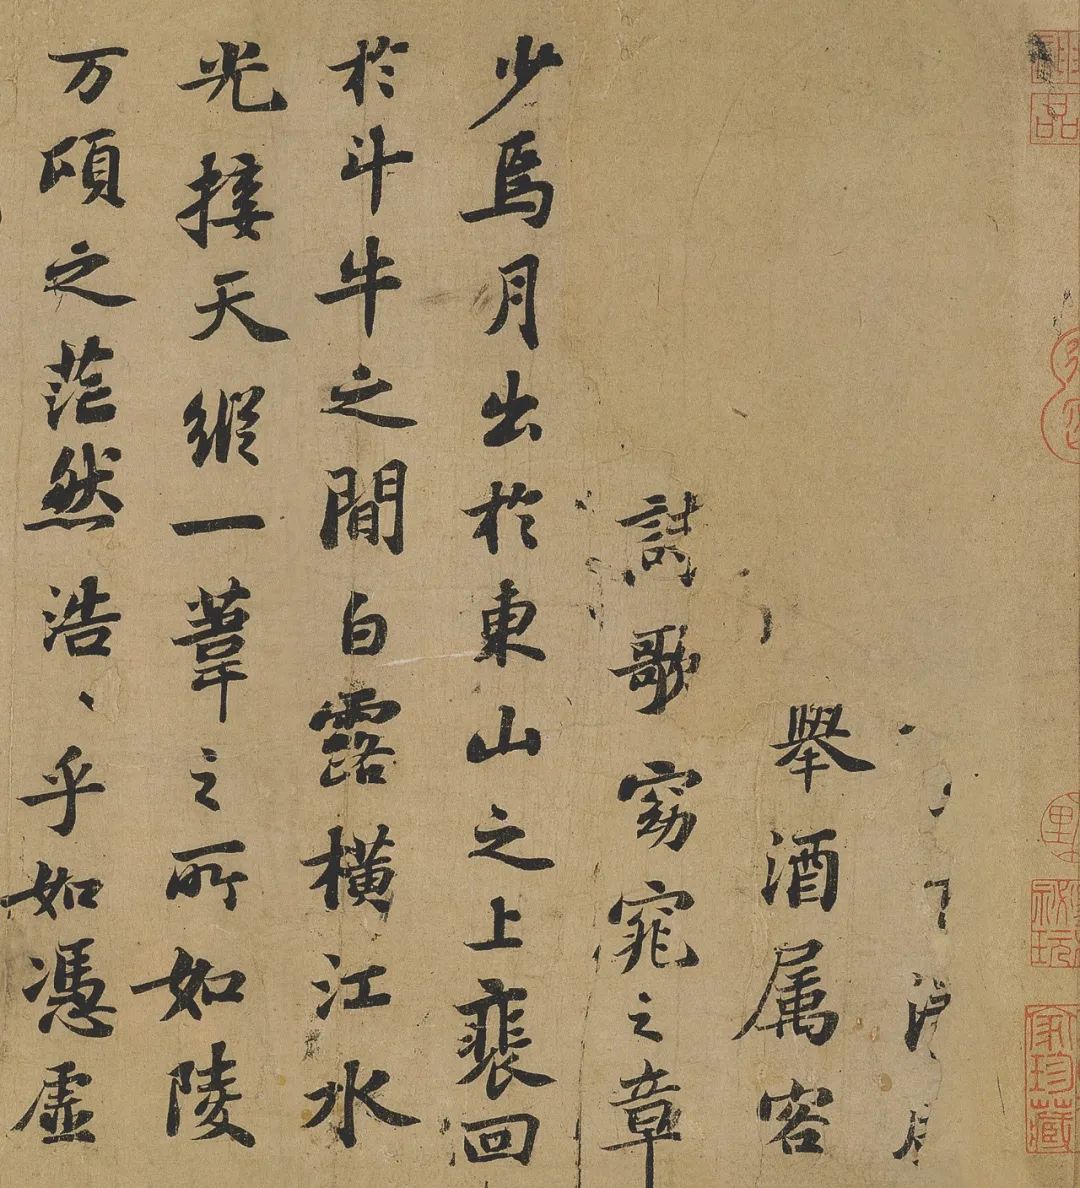 舉酒属客
詩歌窈窕之章
少焉月出於東山之上裴回
於斗牛之間白露橫江水
光接天縱一葦之所如陵
万頃之茫然浩、乎如憑虛